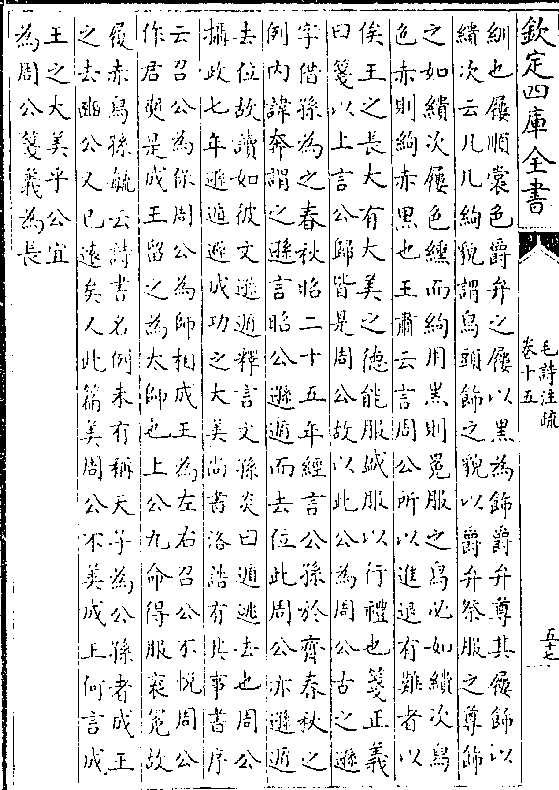 欽定四庫全書
毛詩注疏
卷十五
五十七
絇也屨順裳色爵弁之屨以黑為飾爵弁尊其屨飾以
繢次云几几絇貌謂舄頭飾之貌以爵弁祭服之尊飾
之如繢次屨色纁而絇用黑則冕服之舄必如繢次舄
色赤則絇赤黑也王肅云言周公所以進退有難者以
俟王之長大有大美之德能服盛服以行禮也箋正義
曰箋以上言公歸皆是周公故以此公為周公古之遜
字借孫為之春秋昭二十五年經言公孫於齊春秋之
例内諱奔謂之遜言昭公遜遁而去位此周公亦遜遁
去位故讀如彼文遜遁釋言文孫炎曰遁逃去也周公
攝政七年遜遁避成功之大美尚書洛誥有其事書序
云召公為保周公為師相成王為左右召公不悦周公
作君奭是成王留之為太師也上公九命得服衮冕故
履赤舄孫毓云詩書名例未有稱天子為公孫者成王
之去豳公又已遠矣又此篇美周公不美成王何言成
王之大美乎公宜
為周公箋義為長